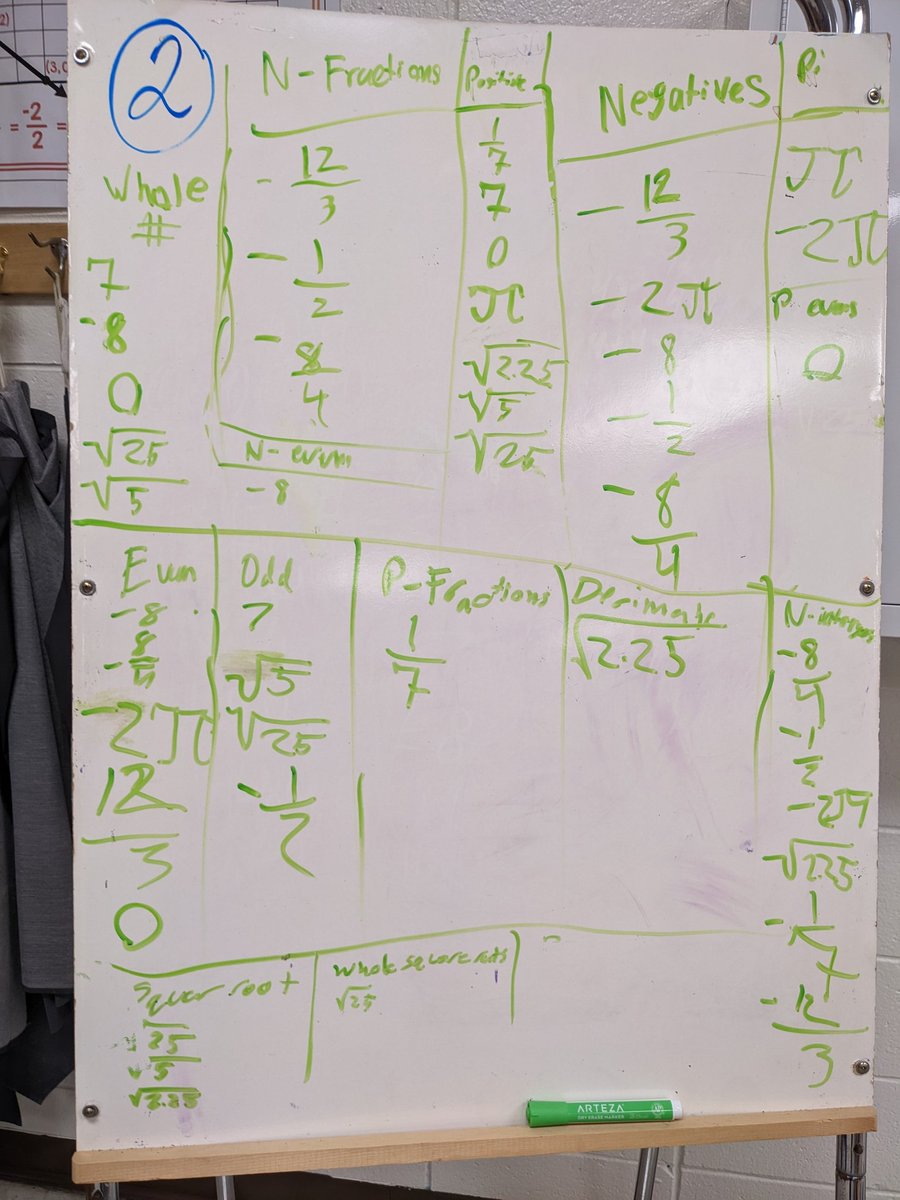 2
Whole
#
7
-8
0
√25
√5
N-Fractions
- 12/3
- 1/2
- 8/4
N-evun
-8
Positive
1/7
7
0
π
√2.25
√5
√25
Negatives
- 12/3
- 2π
- 8
- 1/2
- 8/4
Pi
π
-2π
P-evuns
0
Evun
-8
- 8/4
-2π
12/3
0
Odd
7
√5
√25
- 1/2
P-Fractions
1/7
Desimals
√2.25
N-intergers
-8/4
-1/2
-2π
√2.25
- 1/7
- 12/3
Squar root
√25
√5
√2.25
Whole square roots
√25
-2/2
=
=
ARTEZA
DRY ERASE MARKER